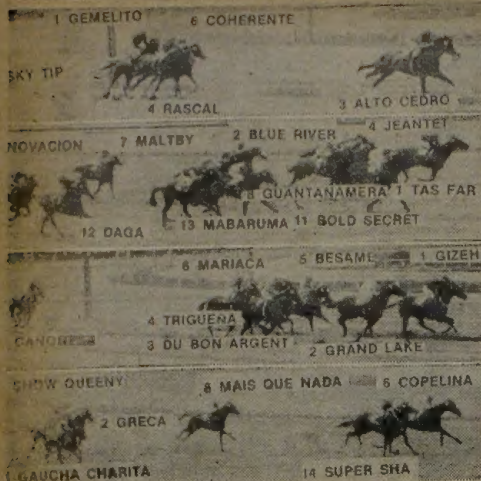 1 GEMELITO 6 COHERENTE
SKY TIP
4 RASCAL 3 ALTO CEDRO
NOVACION 7 MALTBY 2 BLUE RIVER 4 JEANTET
8 GUANTANAMERA 1 TAS FAR
12 DAGA 13 MABARUMA 11 BOLD SECRET
6 MARIACA 5 BESAME 1 GIZEH
4 TRIGUEÑA
3 DU BON ARGENT 2 GRAND LAKE
SHOW QUEENY 8 MAIS QUE NADA 6 COPELINA
2 GRECA
GAUCHA CHARITA 14 SUPER SHA